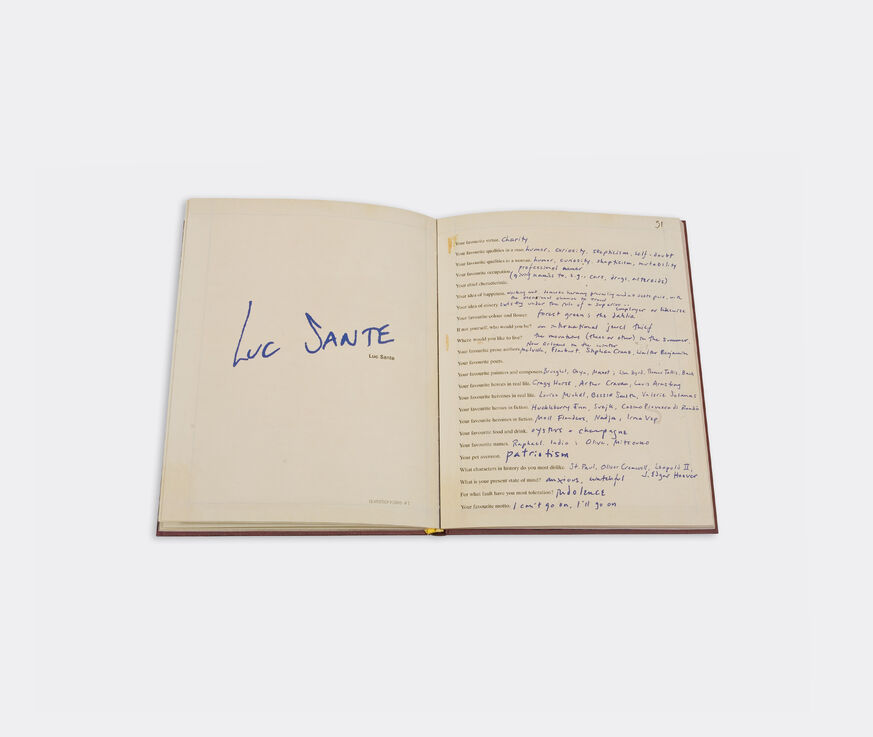 LUC SANTE
Luc Sante
31
Your favourite virtue. Charity
Your favourite qualities in a man. humor, curiosity, skepticism, self-doubt
Your favourite qualities in a woman. humor, curiosity, skepticism, mutability
Your favourite occupation. professional namer
(giving names to, e.g.: cars, drugs, asteroids)
Your chief characteristic.
Your idea of happiness.
the occasional chance to
Your idea of misery. under the rule of a superior employer or likewise
Your favourite colour and flower. forest green; the dahlia
If not yourself, who would you be? an international jewel thief
Where would you like to live? the mountains (these or other) in the summer,
New Orleans in the winter
Your favourite prose authors. Melville, Flaubert, Stephen Crane, Walter Benjamin
Your favourite poets.
Your favourite painters and composers. Brueghel, Goya, Manet; Wm Byrd, Thomas Tallis, Bach
Your favourite heroes in real life. Crazy Horse, Arthur Cravan, Louis Armstrong
Your favourite heroines in real life. Louise Michel, Bessie Smith, Valerie Solanas
Your favourite heroes in fiction. Huckleberry Finn, Svejk, Cosmo Piovasco di Rondò
Your favourite heroines in fiction. Moll Flanders, Nadja, Irma Vep
Your favourite food and drink. oysters + champagne
Your favourite names. Raphael, Indio; Olive,
Your pet aversion. patriotism
What characters in history do you most dislike. St. Paul, Oliver Cromwell, Leopold II,
J. Edgar Hoover
What is your present state of mind? anxious, watchful
For what fault have you most toleration? indolence
Your favourite motto. I can't go on, I'll go on